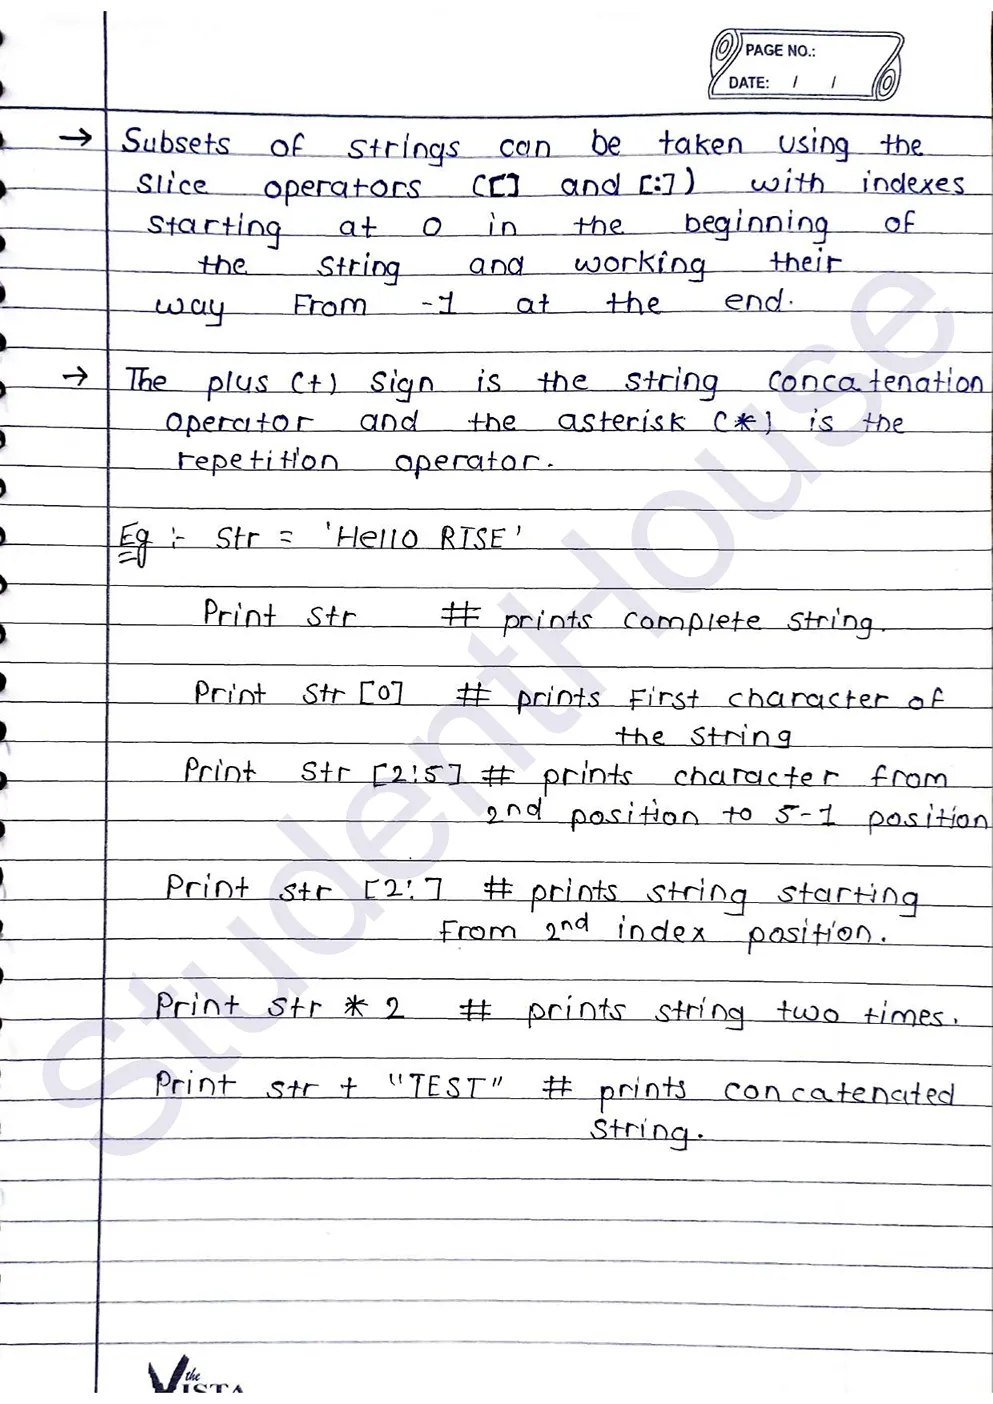 PAGE NO.:
DATE: / /
→ Subsets of strings can be taken using the
slice operators ([] and [:]) with indexes
starting at 0 in the beginning of
the string and working their
way From -1 at the end.
→ The plus (+) sign is the string concatenation
operator and the asterisk (*) is the
repetition operator.
Eg :- Str = 'Hello RISE'
Print str # prints complete string.
Print str [0] # prints First character of
the string
Print str [2:5] # prints character from
2nd position to 5-1 position
Print str [2:] # prints string starting
From 2nd index position.
Print str * 2 # prints string two times.
Print str + "TEST" # prints concatenated
string.
StudentHouse
the
VISTA